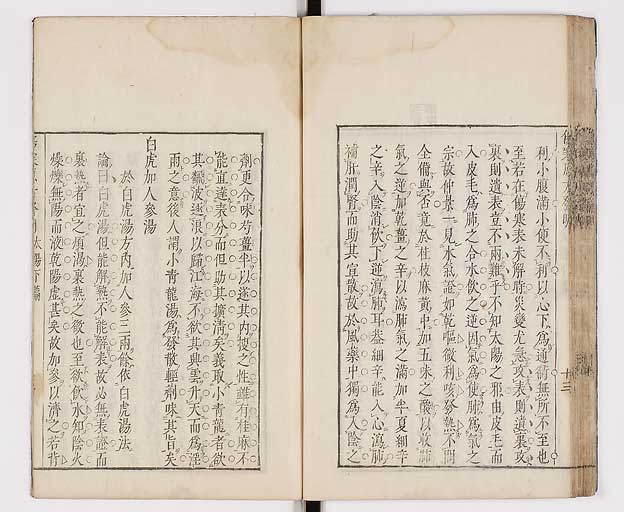 利小腹滿小便不利以心下爲通衢無所不至也
至若在傷寒表未解時災變尤急攻表則遺裏攻
裏則遺表豈不兩難乎不知太陽之邪由皮毛而
入皮毛爲肺之合水飲之逆因氣爲使肺爲氣之
宗故仲景一見水氣證如乾嘔微利咳發熱不問
全備與否竟於桂枝麻黃中加五味之酸以收肺
氣之逆加乾薑之辛以瀉肺氣之滿加半夏細辛
之辛入陰消飲下逆瀉肺耳葢細辛能入心瀉肺
補肝潤腎而助其宣散故於風藥中獨爲入陰之
十三
劑更合味芍薑半以遂其內
之性雖有桂麻不
能直達表分而但助其擴清矣義取小青龍者欲
其翻波逐浪以歸江海不欲其興雲升天而爲淫
雨之意後人謂小青龍湯爲發散輕劑昧其旨矣
白虎加人參湯
於白虎湯方內加人參三兩餘依白虎湯法
論曰白虎湯但能解熱不能解表故必無表證而
裏熱者宜之煩渴裏熱之徵也至欲飲水知陰火
燥爍無陽而液乾陽虛甚矣故加參以濟之若背
太陽下篇